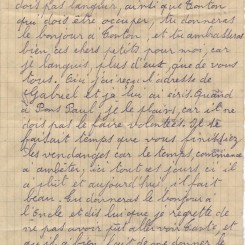 dois pas languir, ainsi que Tonton
qui dois être occuper, tu donneras
le bonjour à Tonton, et tu embrasseras
bien les chers petits pour moi, car
je languis, plus d'eux, que de vous
tous. Ici j'ai reçu l'adresse de
Gabriel et je lui ai écrit. Quand
à Paul, je le plains, car il ne
dois pas le faire volontiers. Il
fallait temps que vous finissiez
les vendanges car le temps, continue
à embêter, ici tout ces jours ci il
a plut et aujourd'hui il fait
beau. Tu donneras le bonjour à
l'Oncle et dis lui que je regrette de
ne pas avoir fait